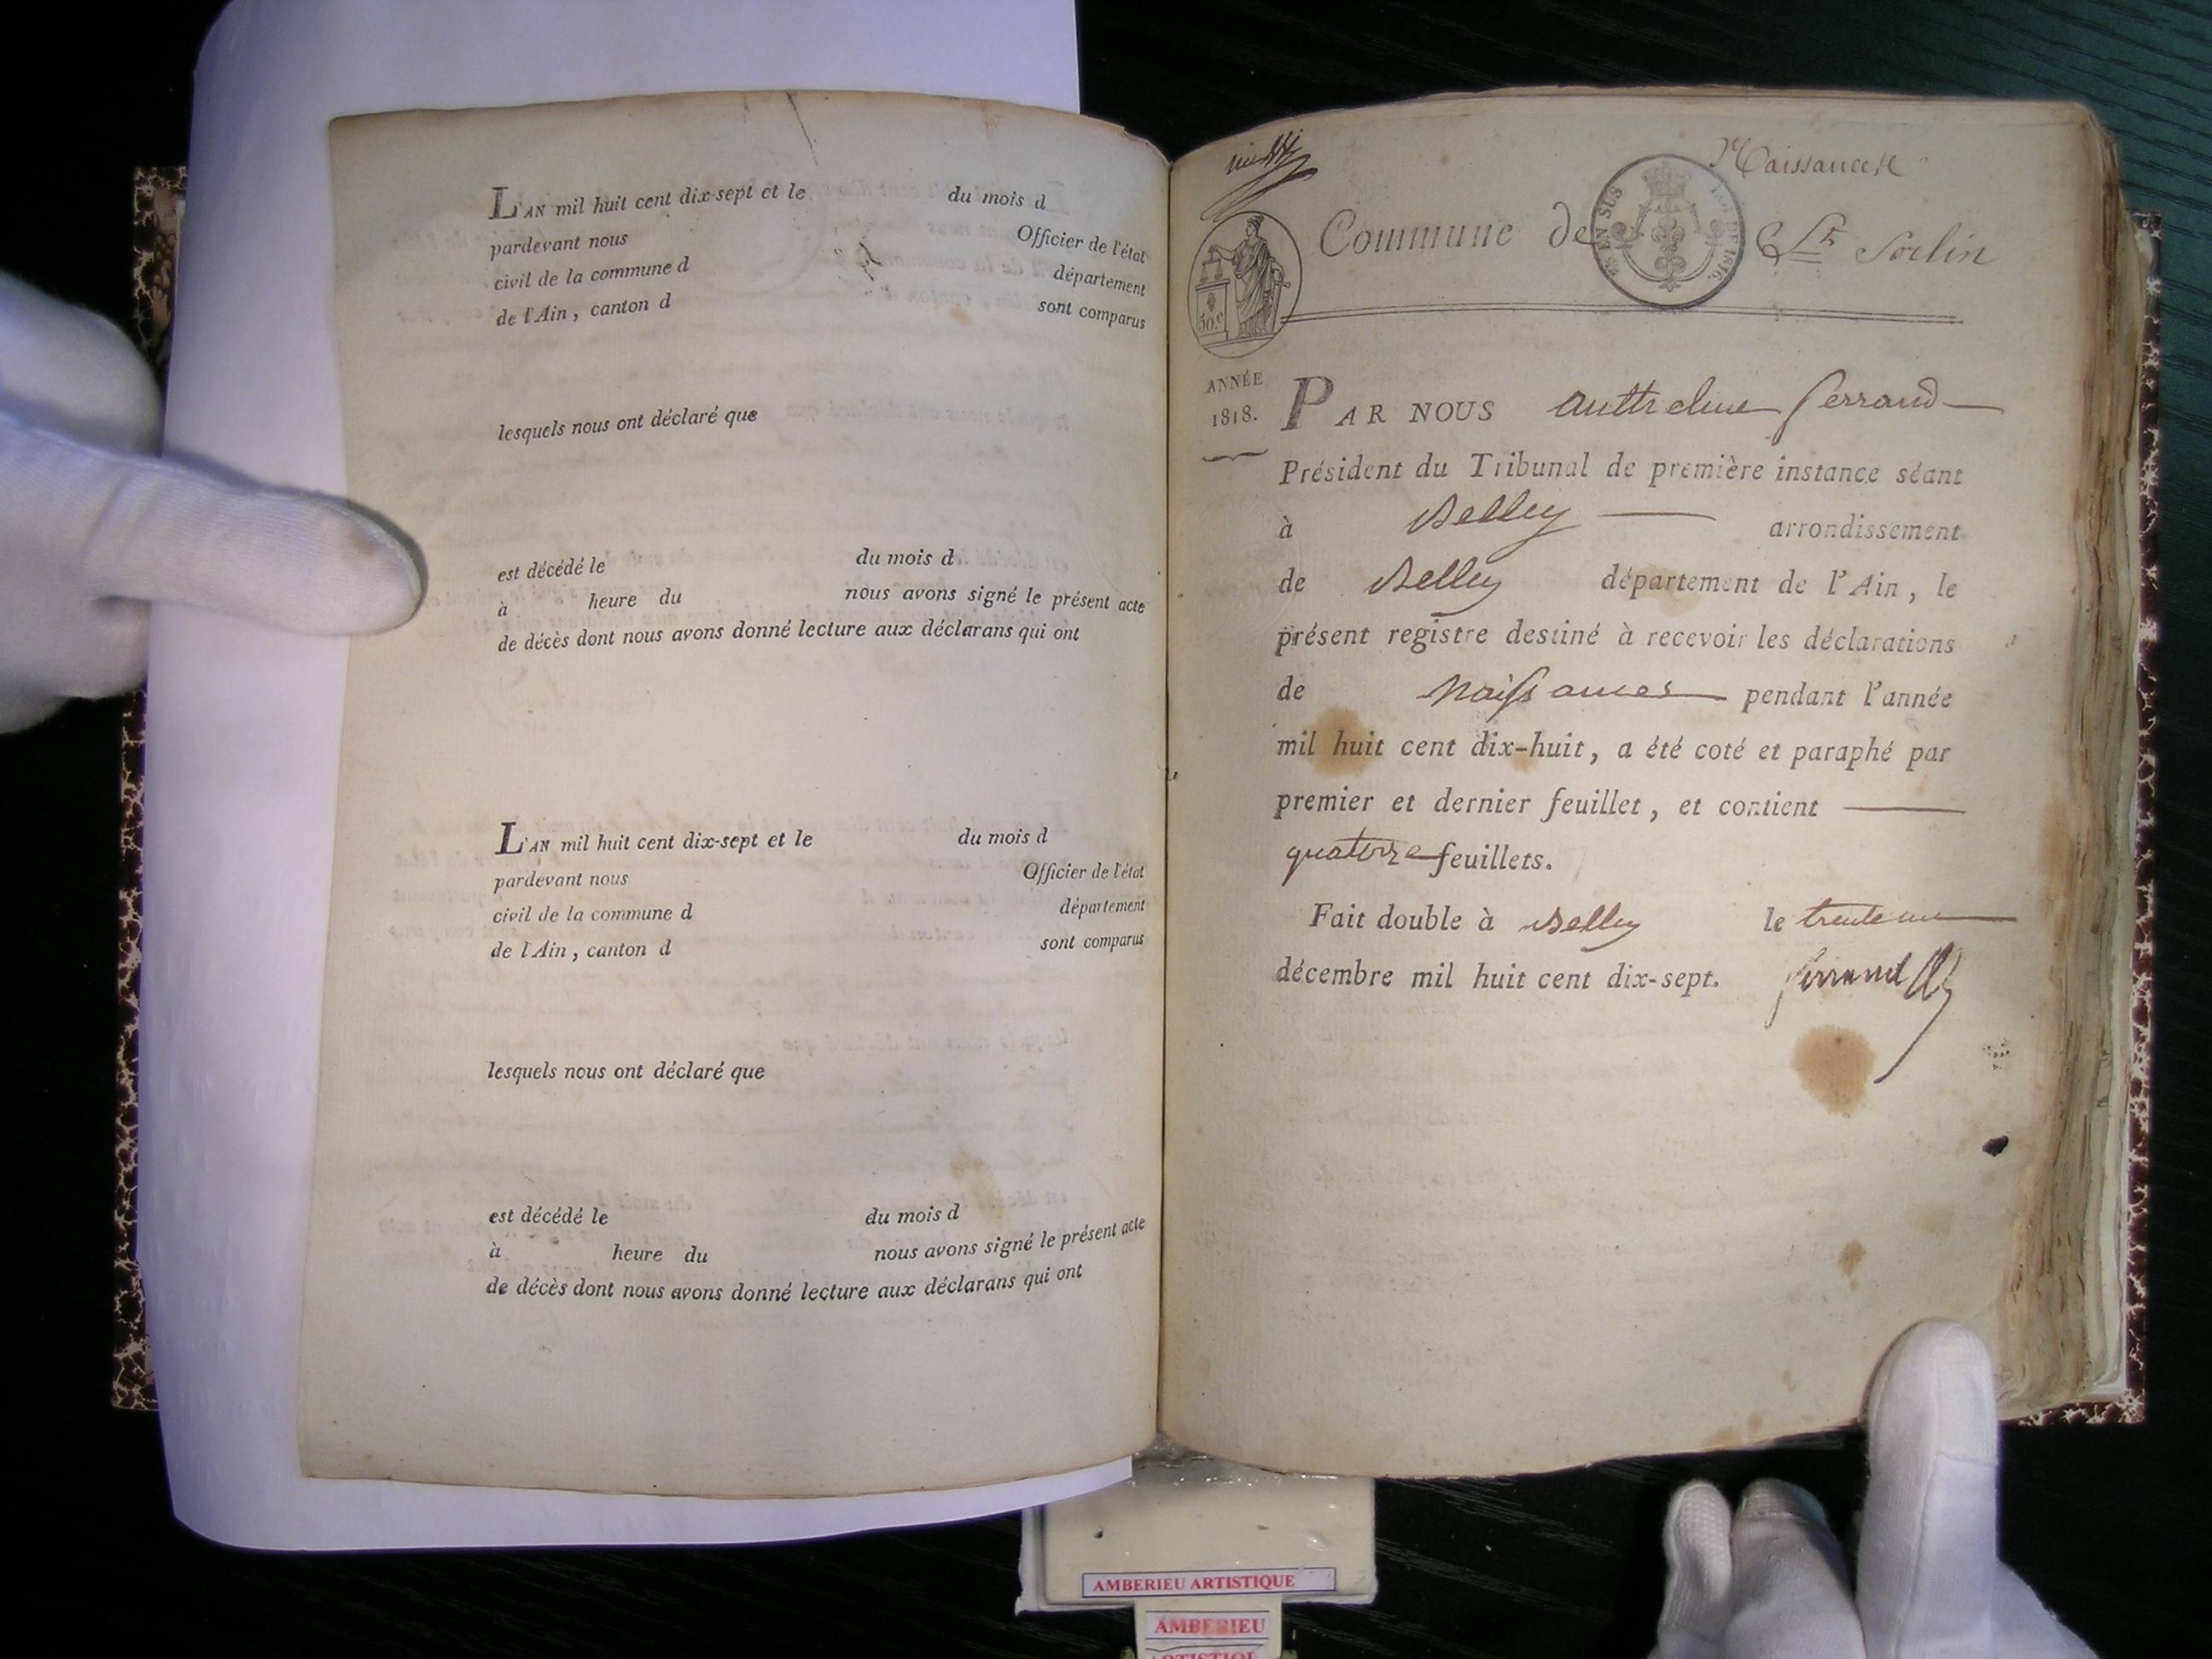 L'AN mil huit cent dix-sept et le du mois d
pardevant nous Officier de l'état
civil de la commune d département
de l'Ain, canton d sont comparus
lesquels nous ont déclaré que
est décédé le du mois d
à heure du nous avons signé le présent acte
de décès dont nous avons donné lecture aux déclarans qui ont
L'AN mil huit cent dix-sept et le du mois d
pardevant nous Officier de l'état
civil de la commune d département
de l'Ain, canton d sont comparus
lesquels nous ont déclaré que
est décédé le du mois d
à heure du nous avons signé le présent acte
de décès dont nous avons donné lecture aux déclarans qui ont
Naissances
EN SUS
1816.
Commune de St Sorlin
50.c
ANNÉE
1818.
PAR NOUS Anthelme ferrand
Président du Tribunal de première instance séant
à Belley arrondissement
de Belley département de l'Ain, le
présent registre destiné à recevoir les déclarations
de Naissances pendant l'année
mil huit cent dix-huit, a été coté et paraphé par
premier et dernier feuillet, et contient
quatorze feuillets.
Fait double à Belley le trente un
décembre mil huit cent dix-sept. ferrand
AMBERIEU ARTISTIQUE
AMBERIEU
ARTISTIQUE